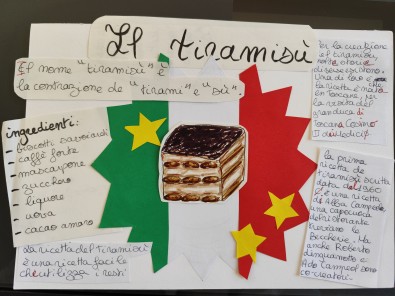 Il tiramisù
Il nome "tiramisù" è
la contrazione de "tirami" e "su".
ingredienti:
- biscotti savoiardi
- caffè forte
- mascarpone
- zucchero
- liquore
- uova
- cacao amaro
La ricetta del tiramisù
è una ricetta facile
che utilizza i resti
Per la creazione
del tiramisù,
storie
diverse
Una di
la ricetta è nata
in Toscana, per
la visita del
granduca di
Toscana Cosimo
II de' Medici
la prima
ricetta de
tiramisù scritta
data del 1960
È una ricetta
di Alba Campeol
una capocuoca
del ristorante
trevisano le
Beccherie. Ma
anche Roberto
Linguanotto e
Ado Campeol sono
co-creatori.